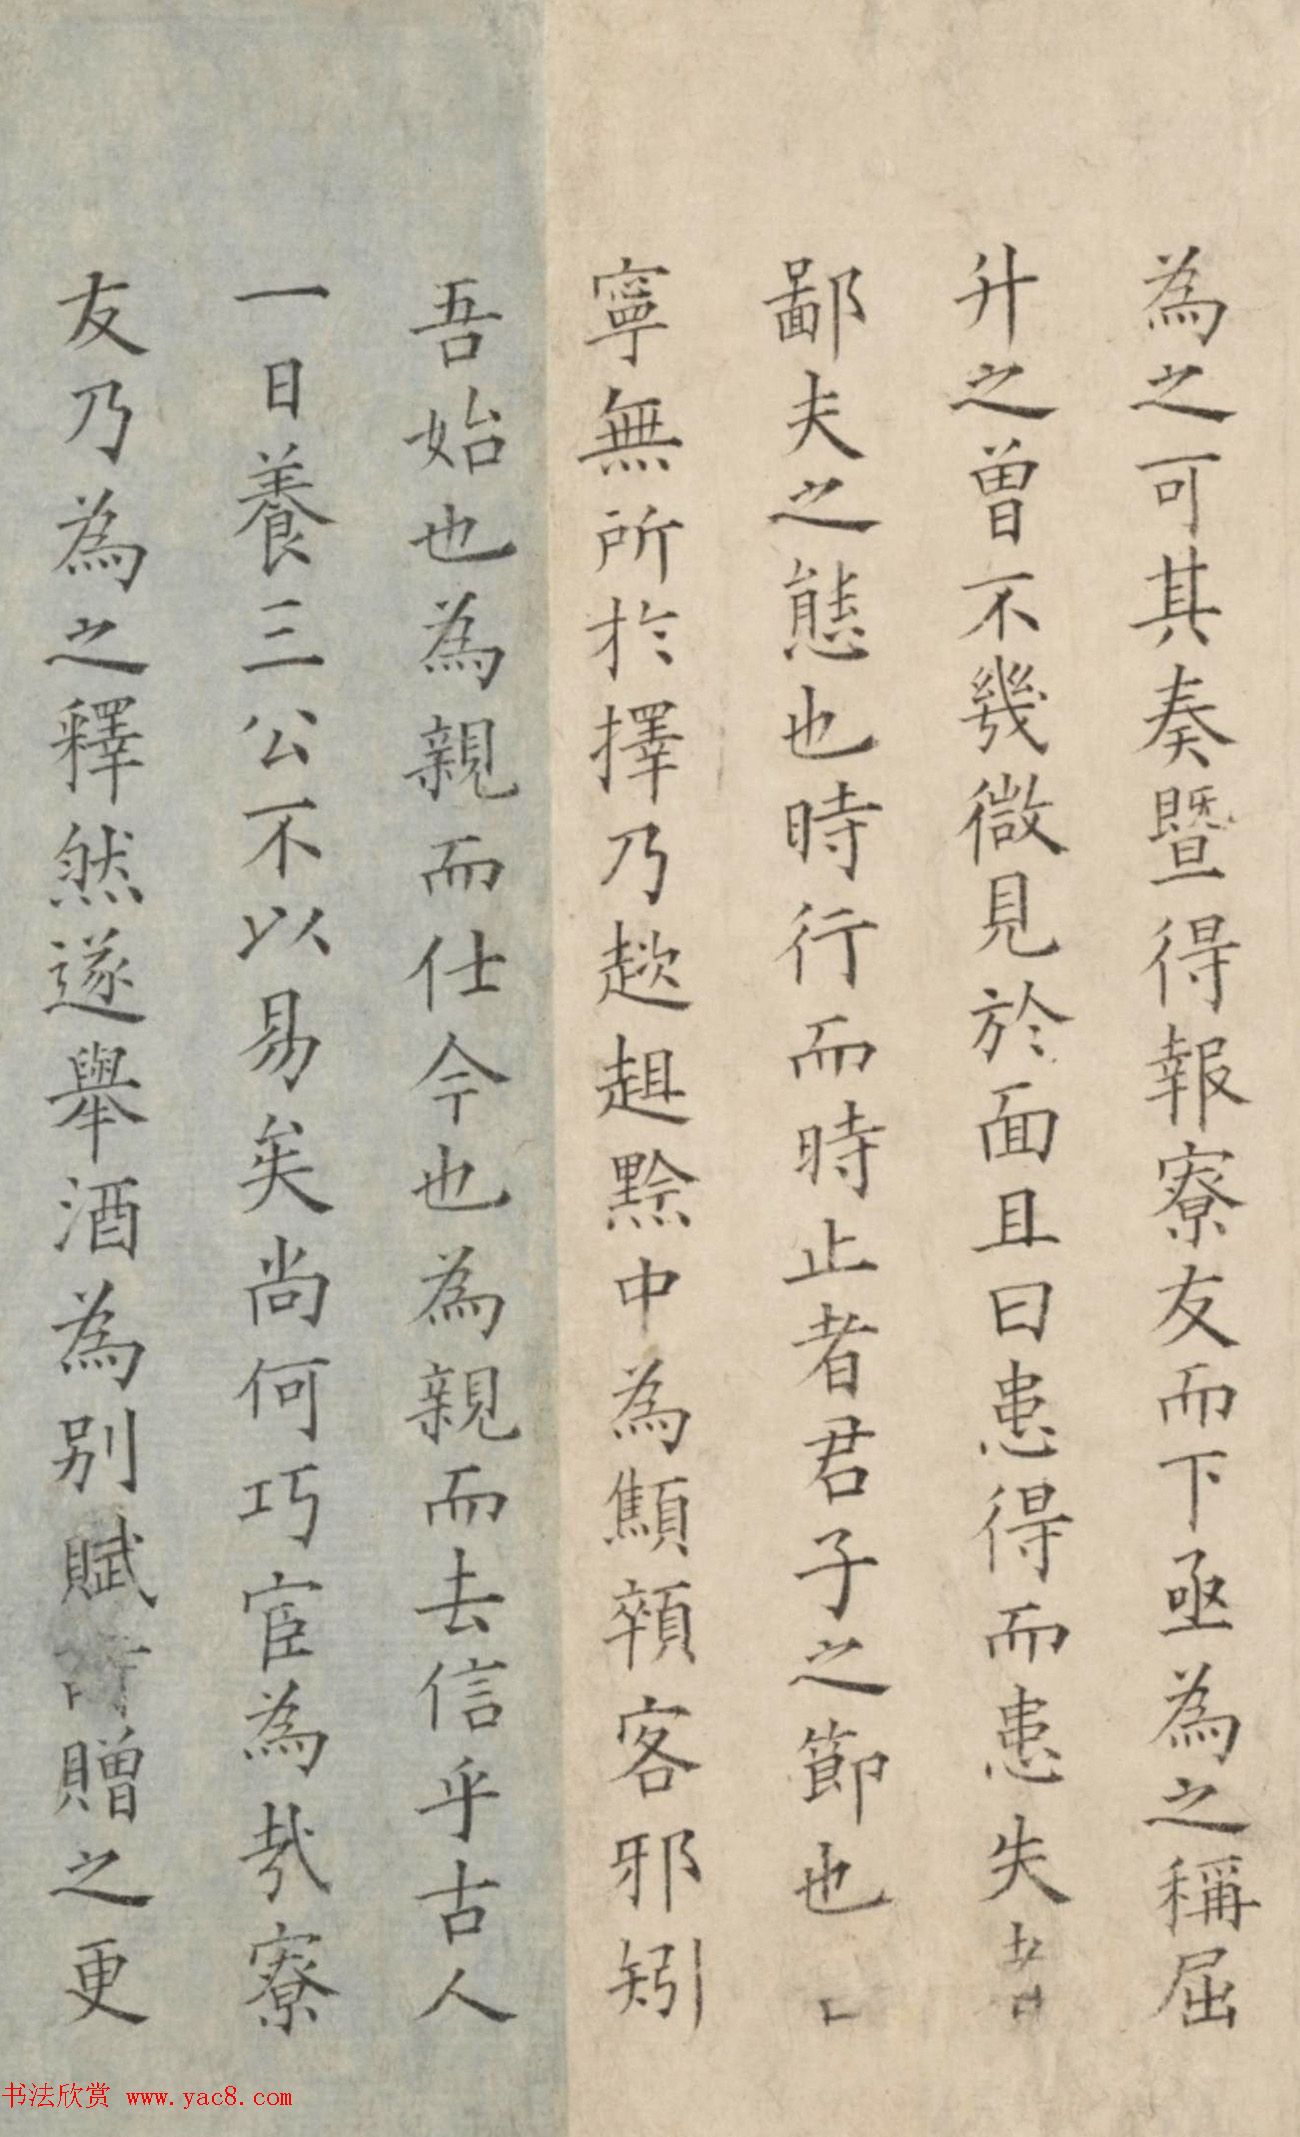 為之可其奏暨得報寮友而下亟為之稱屈
升之曾不幾微見於面且曰患得而患失者
鄙夫之態也時行而時止者君子之節也
寧無所於擇乃趑趄黥中為顦顇客邪矧
吾始也為親而仕今也為親而去信乎古人
一日養三公不以易矣尚何巧宦為哉寮
友乃為之釋然遂舉酒為別賦詩贈之更
书法欣赏 www.yac8.com